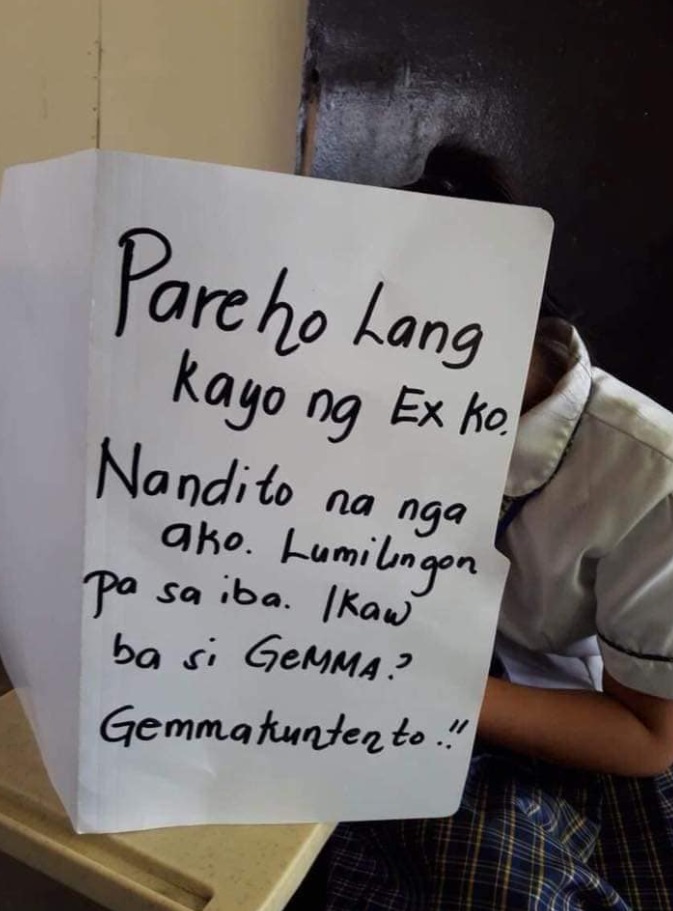 Pareho Lang
kayo ng Ex ko.
Nandito na nga
ako. Lumilingon
pa sa iba. Ikaw
ba si GeMMA?
Gemmakuntento.!!